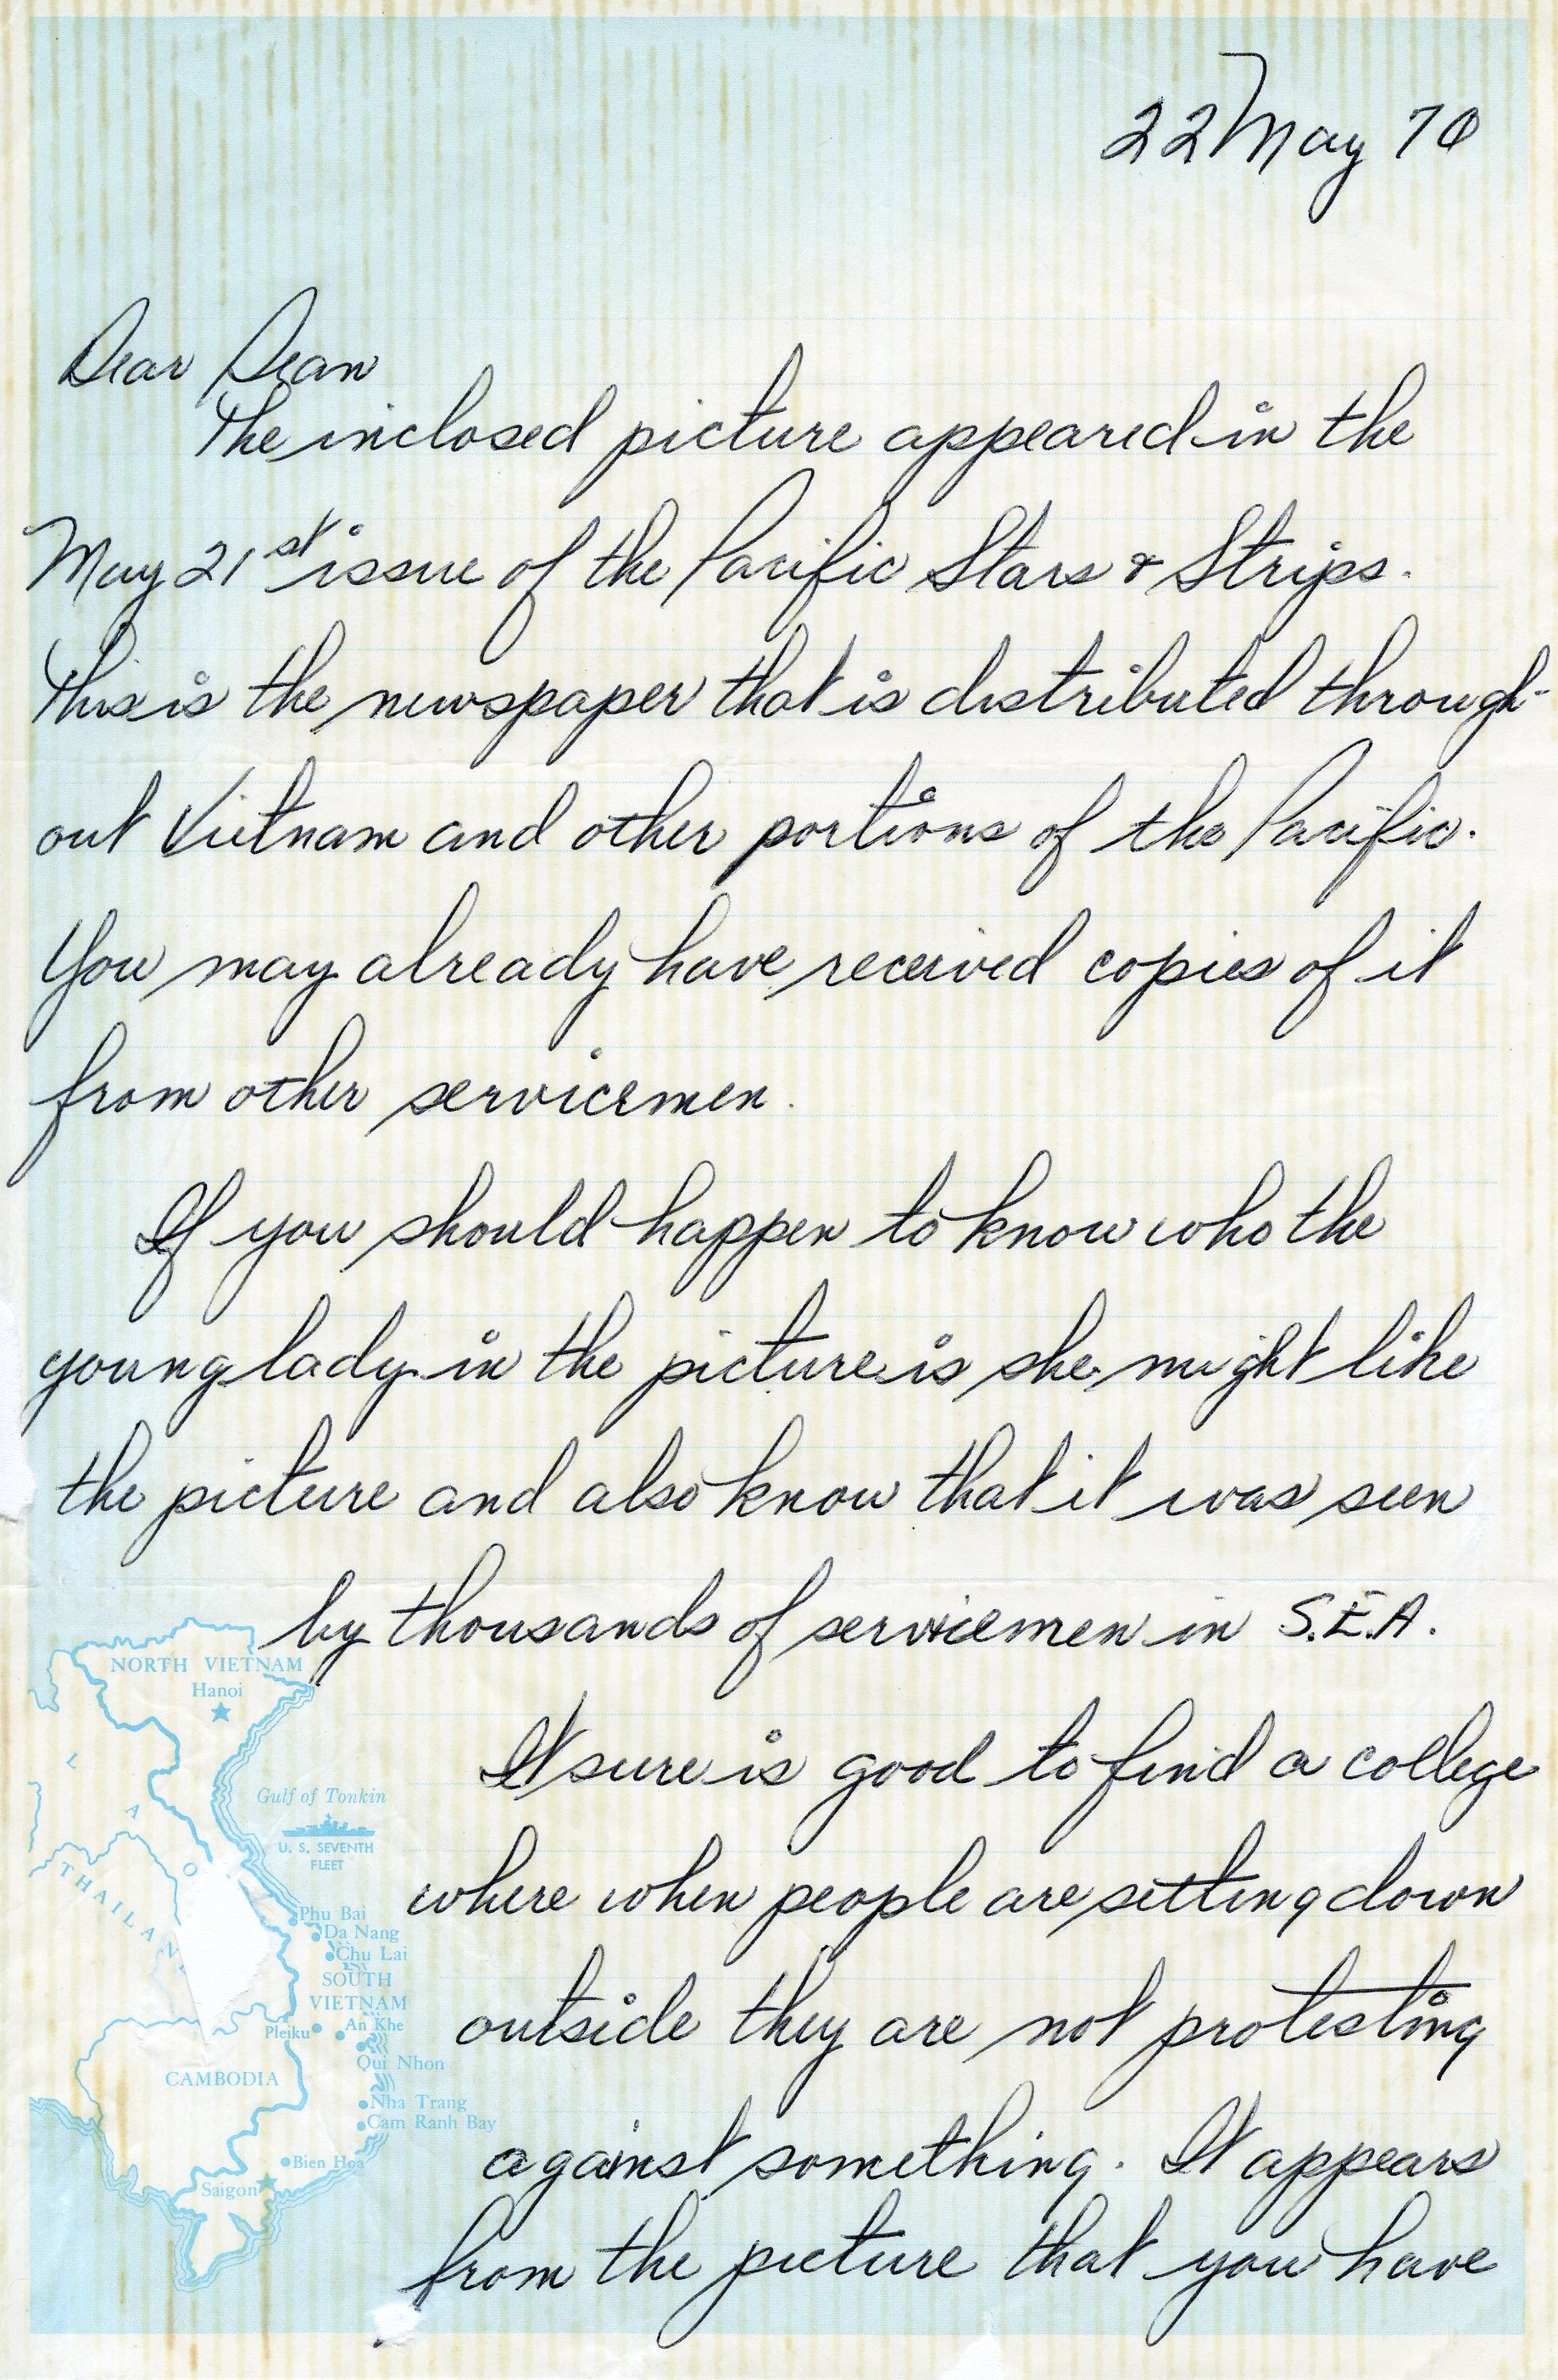 22 May 70
Dear Dean
The inclosed picture appeared in the
May 21st issue of the Pacific Stars & Strips.
This is the newspaper that is distributed through-
out Vietnam and other portions of the Pacific.
You may already have received copies of it
from other servicemen.
If you should happen to know who the
young lady in the picture is she might like
the picture and also know that it was seen
by thousands of servicemen in S.E.A.
It sure is good to find a college
where when people are setting down
outside they are not protesting
against something. It appears
from the picture that you have
NORTH VIETNAM
Hanoi
LAO
Gulf of Tonkin
U. S. SEVENTH
FLEET
THAILAN
Phu Bai
Da Nang
Chu Lai
SOUTH
VIETNAM
Pleiku
An Khe
Qui Nhon
CAMBODIA
Nha Trang
Cam Ranh Bay
Bien Hoa
Saigon